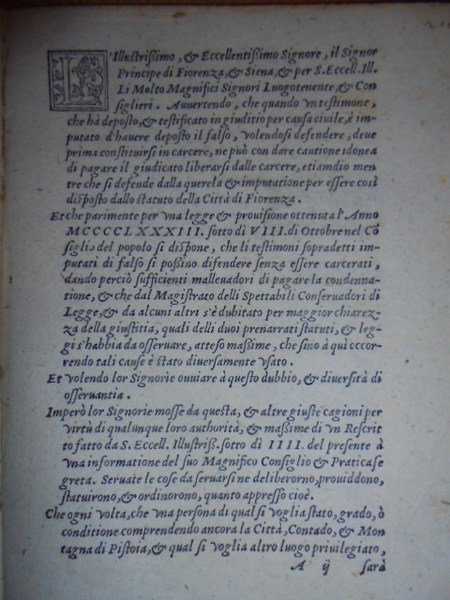 IL Illustrißimo, & Eccellentißimo Signore, il Signor
Principe di Fiorenza, & Siena, & per S. Eccell. Ill.
Li Molto Magnifici Signori Luogotenente, & Con
siglieri. Auuertendo, che quando vn testimone,
che hà deposto, & testificato in giuditio per causa ciuile, è im
putato d'hauere deposto il falso, volendosi defendere, deue
prima constituirsi in carcere, ne può con dare cautione idonea
di pagare il giudicato liberarsi dalle carcere, etiamdio men
tre che si defende dalla querela & imputatione per essere cosi
disposto dallo statuto della Città di Fiorenza.
Et che parimente per vna legge & prouisione ottenuta l'Anno
MCCCCLXXXIII. sotto di VIII. di Ottobre nel Cō
siglio del popolo si dispone, che li testimoni sopradetti im
putati di falso si poßino difendere senza essere carcerati,
dando perciò sufficienti malleuadori di pagare la condenna-
tione, & che dal Magistrato delli Spettabili Conseruadori di
Legge, & da alcuni altri s'è dubitato per maggior chiarez-
za della giustitia, quali delli duoi prenarrati statuti, & leg-
gi s'habbia da osseruare, atteso maßime, che sino à quì occor-
rendo tali cause è stato diuersamente vsato.
Et volendo lor Signorie ouuiare à questo dubbio, & diuersità di
osseruantia.
Imperò lor Signorie mosse da questa, & altre giuste cagioni per
virtù di qualunque loro authorità, & maßime di vn Rescrit
to fatto da S. Eccell. Illustriß. sotto di IIII. del presente à
vna informatione del suo Magnifico Consiglio & Pratica se
greta. Seruate le cose da seruarsi ne deliberorno, prouiddono,
statuirono, & ordinorono, quanto appresso cioè.
Che ogni volta, che vna persona di qual si voglia stato, grado, ò
conditione comprendendo ancora la Città, Contado, & Mon
tagna di Pistoia, & qual si voglia altro luogo priuilegiato,
A ij sarà